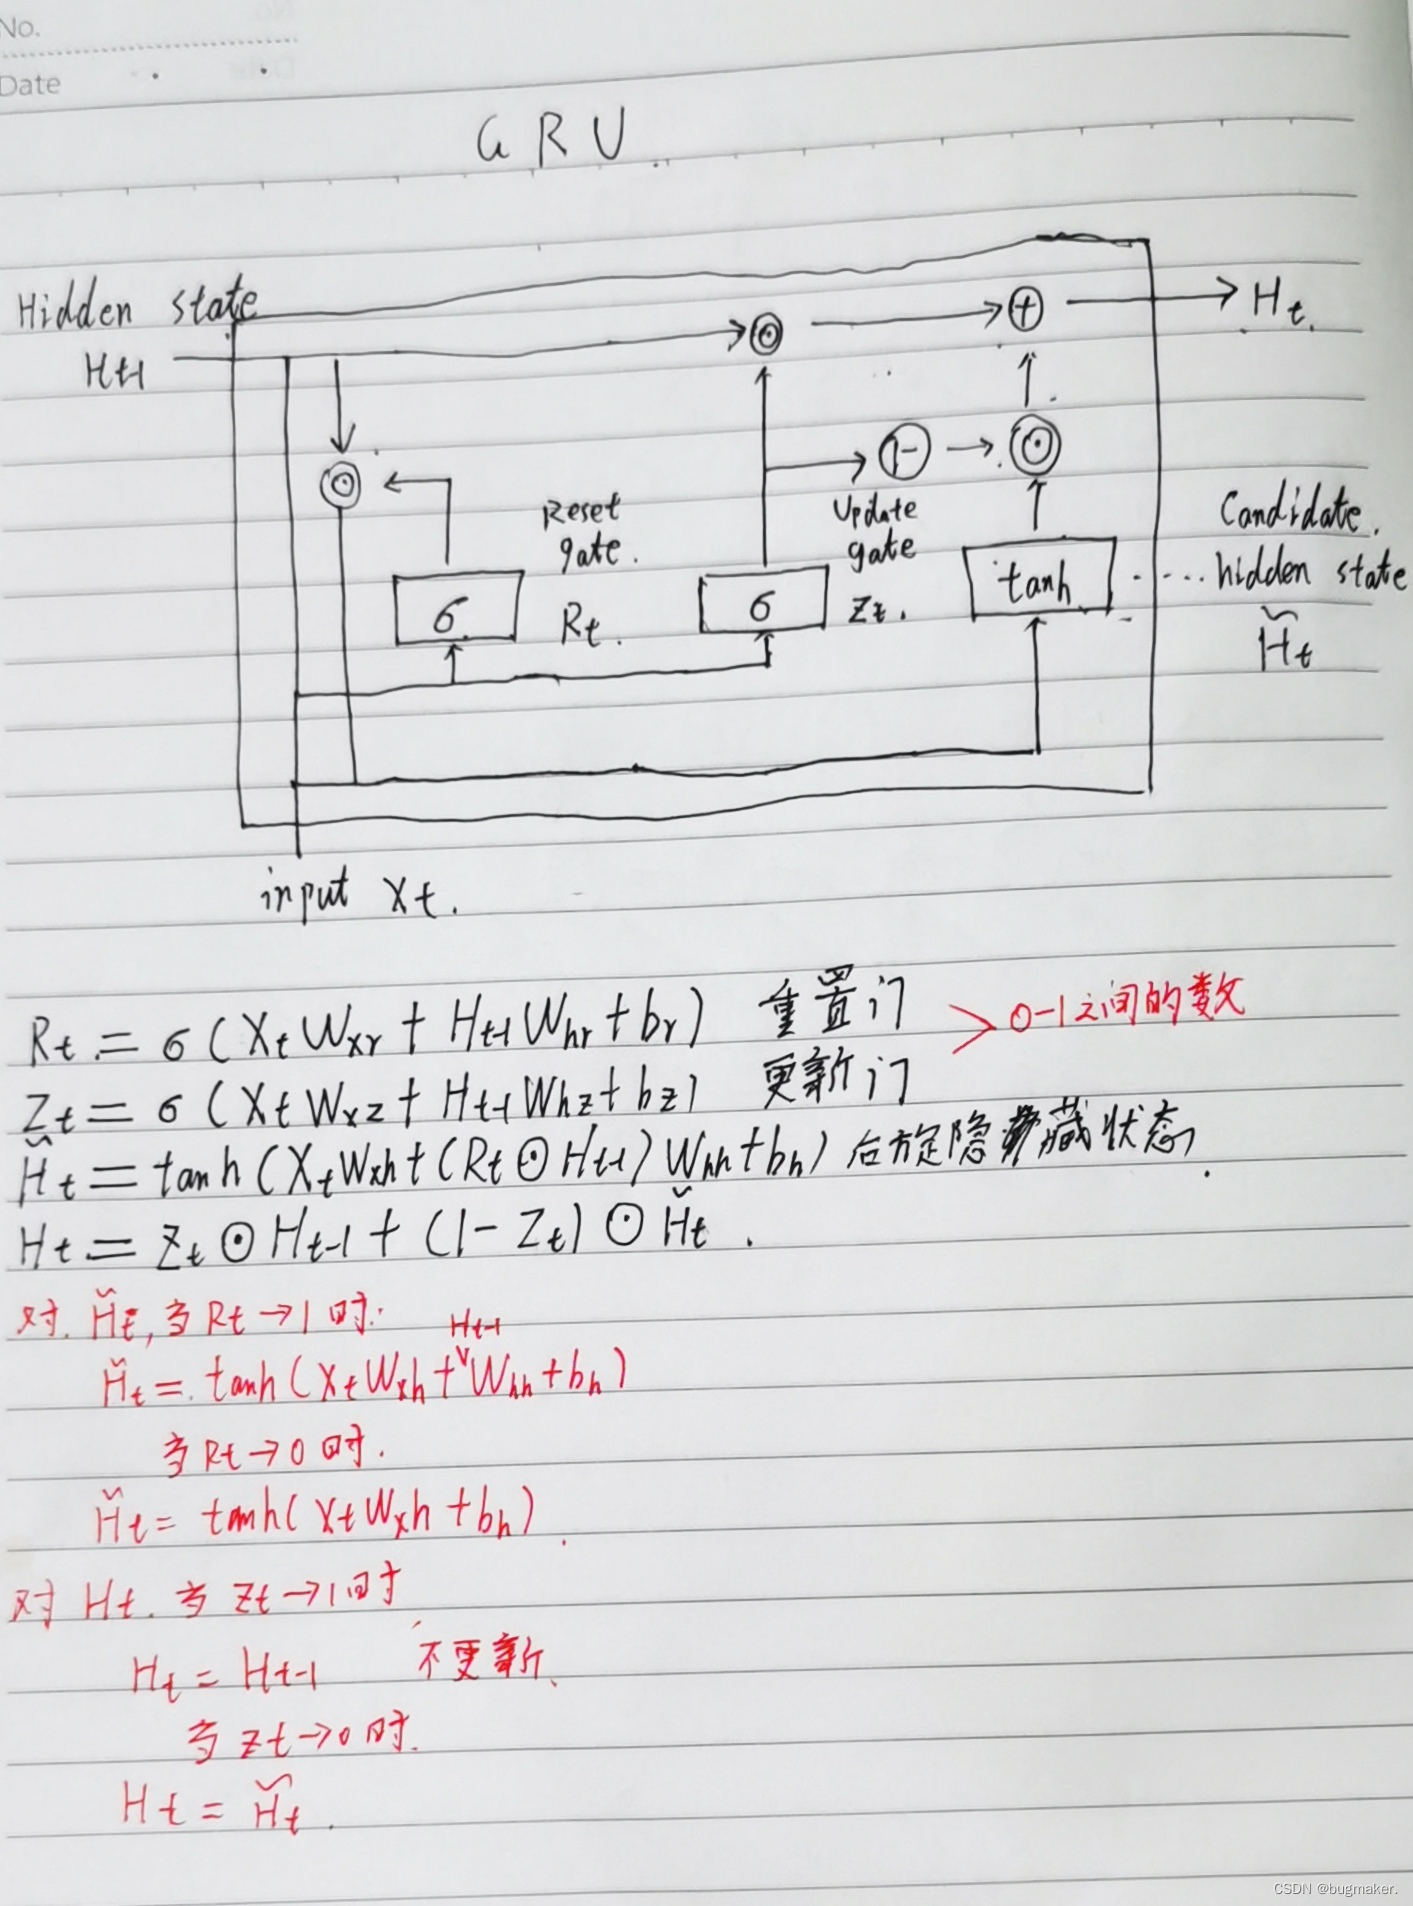 No.
Date
GRU
Hidden state
Ht-1
Ht.
1-
Reset
gate.
Rt.
Update
gate
Zt.
σ
σ
tanh
Candidate.
hidden state
H̃t
input Xt.
Rt = σ(XtWxr + Ht-1Whr + br) 重置门
Zt = σ(XtWxz + Ht-1Whz + bz) 更新门
> 0-1之间的数
H̃t = tanh(XtWxh + (Rt⊙Ht-1)Whh + bh) 隐藏状态.
Ht = Zt⊙Ht-1 + (1-Zt)⊙H̃t.
对.H̃t,当Rt→1时.
H̃t = tanh(XtWxh + Ht-1Whh + bh)
当Rt→0时.
H̃t = tanh(XtWxh + bh).
对Ht.当Zt→1时
Ht = Ht-1 不更新.
当Zt→0时.
Ht = H̃t.
CSDN @bugmaker.